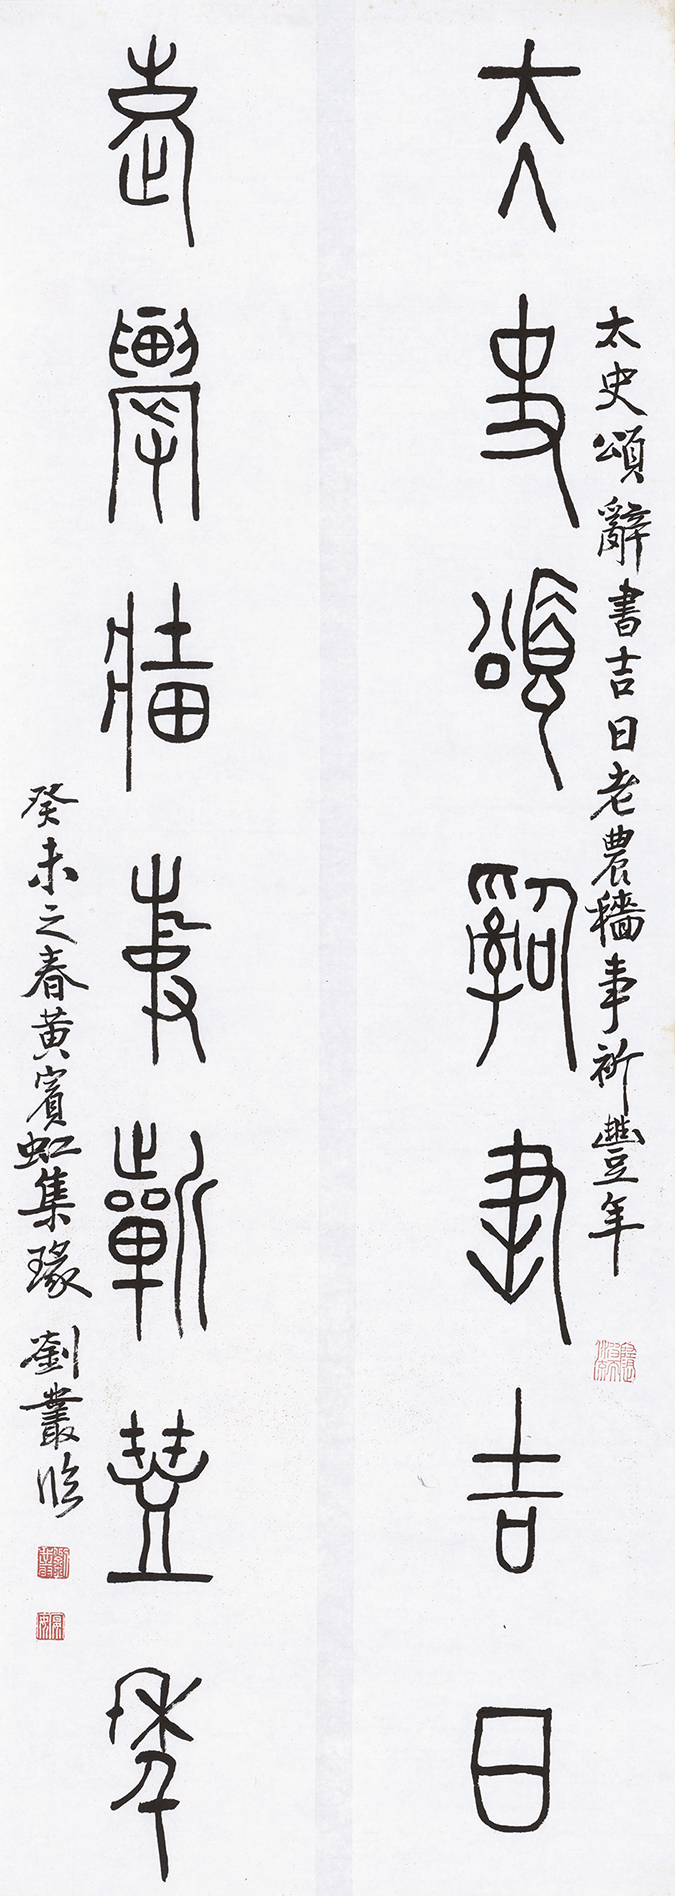 太史頌辭書吉日老農穡事祈豐年
大史頌辭書吉日
老農穡事祈豐年
癸未之春黃賓虹集瑑 劉叢臨